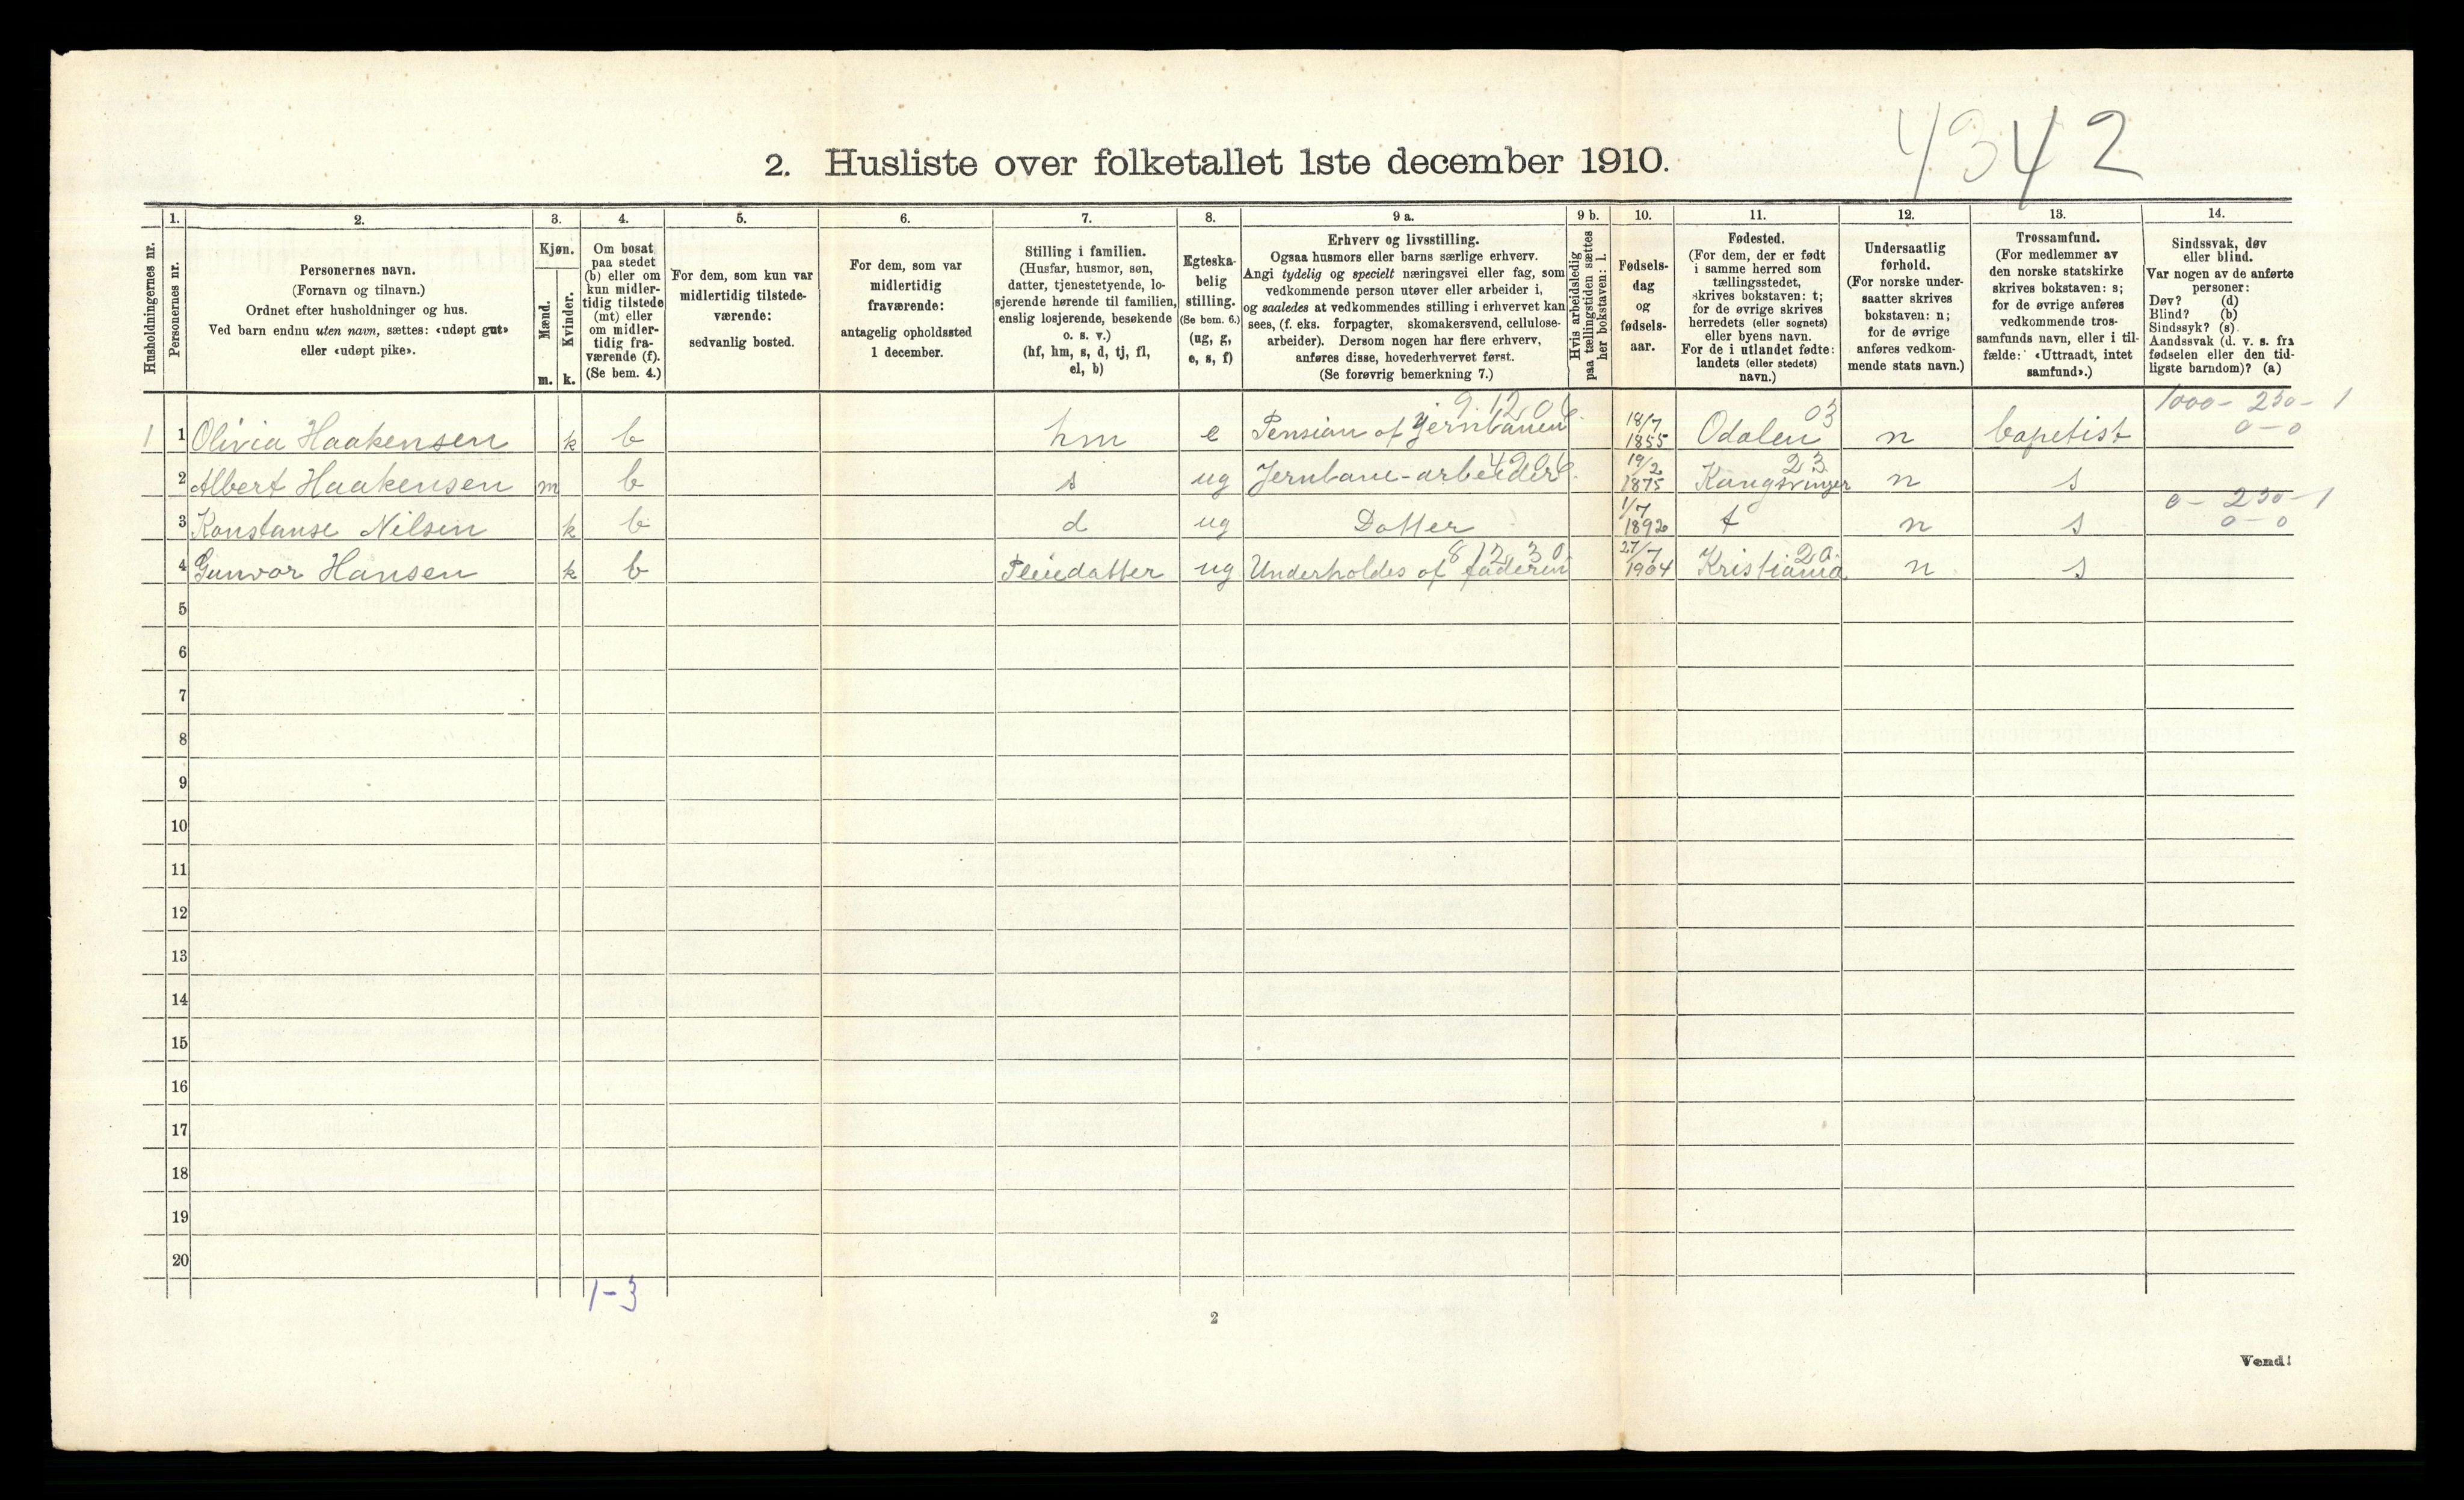 4342
2. Husliste over folketallet 1ste december 1910.
Husholdningernes nr.
1.
Personernes nr.
2.
Personernes navn.
(Fornavn og tilnavn.)
Ordnet efter husholdninger og hus.
Ved barn endnu uten navn, sættes: «udøpt gut»
eller «udøpt pike».
3.
Kjøn.
Mænd.
Kvinder.
m. k.
4.
Om bosat
paa stedet
(b) eller om
kun midler-
tidig tilstede
(mt) eller
om midler-
tidig fra-
værende (f).
(Se bem. 4.)
5.
For dem, som kun var
midlertidig tilstede-
værende:
sedvanlig bosted.
6.
For dem, som var
midlertidig
fraværende:
antagelig opholdssted
1 december.
7.
Stilling i familien.
(Husfar, husmor, søn,
datter, tjenestetyende, lo-
sjerende hørende til familien,
enslig losjerende, besøkende
o. s. v.)
(hf, hm, s, d, tj, fl,
el, b)
8.
Egteska-
belig
stilling.
(Se bem. 6.)
(ug, g,
e, s, f)
9 a.
Erhverv og livsstilling.
Ogsaa husmors eller barns særlige erhverv.
Angi tydelig og specielt næringsvei eller fag, som
vedkommende person utøver eller arbeider i,
og saaledes at vedkommendes stilling i erhvervet kan
sees, (f. eks. forpagter, skomakersvend, cellulose-
arbeider). Dersom nogen har flere erhverv,
anføres disse, hovederhvervet først.
(Se forøvrig bemerkning 7.)
9 b.
Hvis arbeidsledig
paa tællingstiden sættes
her bokstaven: l.
10.
Fødsels-
dag
og
fødsels-
aar.
11.
Fødested.
(For dem, der er født
i samme herred som
tællingsstedet,
skrives bokstaven: t;
for de øvrige skrives
herredets (eller sognets)
eller byens navn.
For de i utlandet fødte:
landets (eller stedets)
navn.)
12.
Undersaatlig
forhold.
(For norske under-
saatter skrives
bokstaven: n;
for de øvrige
anføres vedkom-
mende stats navn.)
13.
Trossamfund.
(For medlemmer av
den norske statskirke
skrives bokstaven: s;
for de øvrige anføres
vedkommende tros-
samfunds navn, eller i til-
fælde: «Uttraadt, intet
samfund».)
14.
Sindssvak, døv
eller blind.
Var nogen av de anførte
personer:
Døv? (d)
Blind? (b)
Sindssyk? (s)
Aandssvak (d. v. s. fra
fødselen eller den tid-
ligste barndom)? (a)
03 1000 - 230 - 1
1 1 Olivia Haakensen k b hm e Pension af Jernbanen 18/7 1855 Odalen n bapetist 0-0
23
2 Albert Haakensen m b s ug Jernbane-arbeider 19/2 1875 Kongsvinger n s
0 - 230 - 1
3 Konstanse Nilsen k b d ug Datter 1/7 1892 t n s 0-0
8 12 30 20
4 Gunvor Hansen k b Pleiedatter ug Underholdes af faderen 27/7 1904 Kristiania n s
5
6
7
8
9
10
11
12
13
14
15
16
17
18
19
20
1-3
2
Vend!